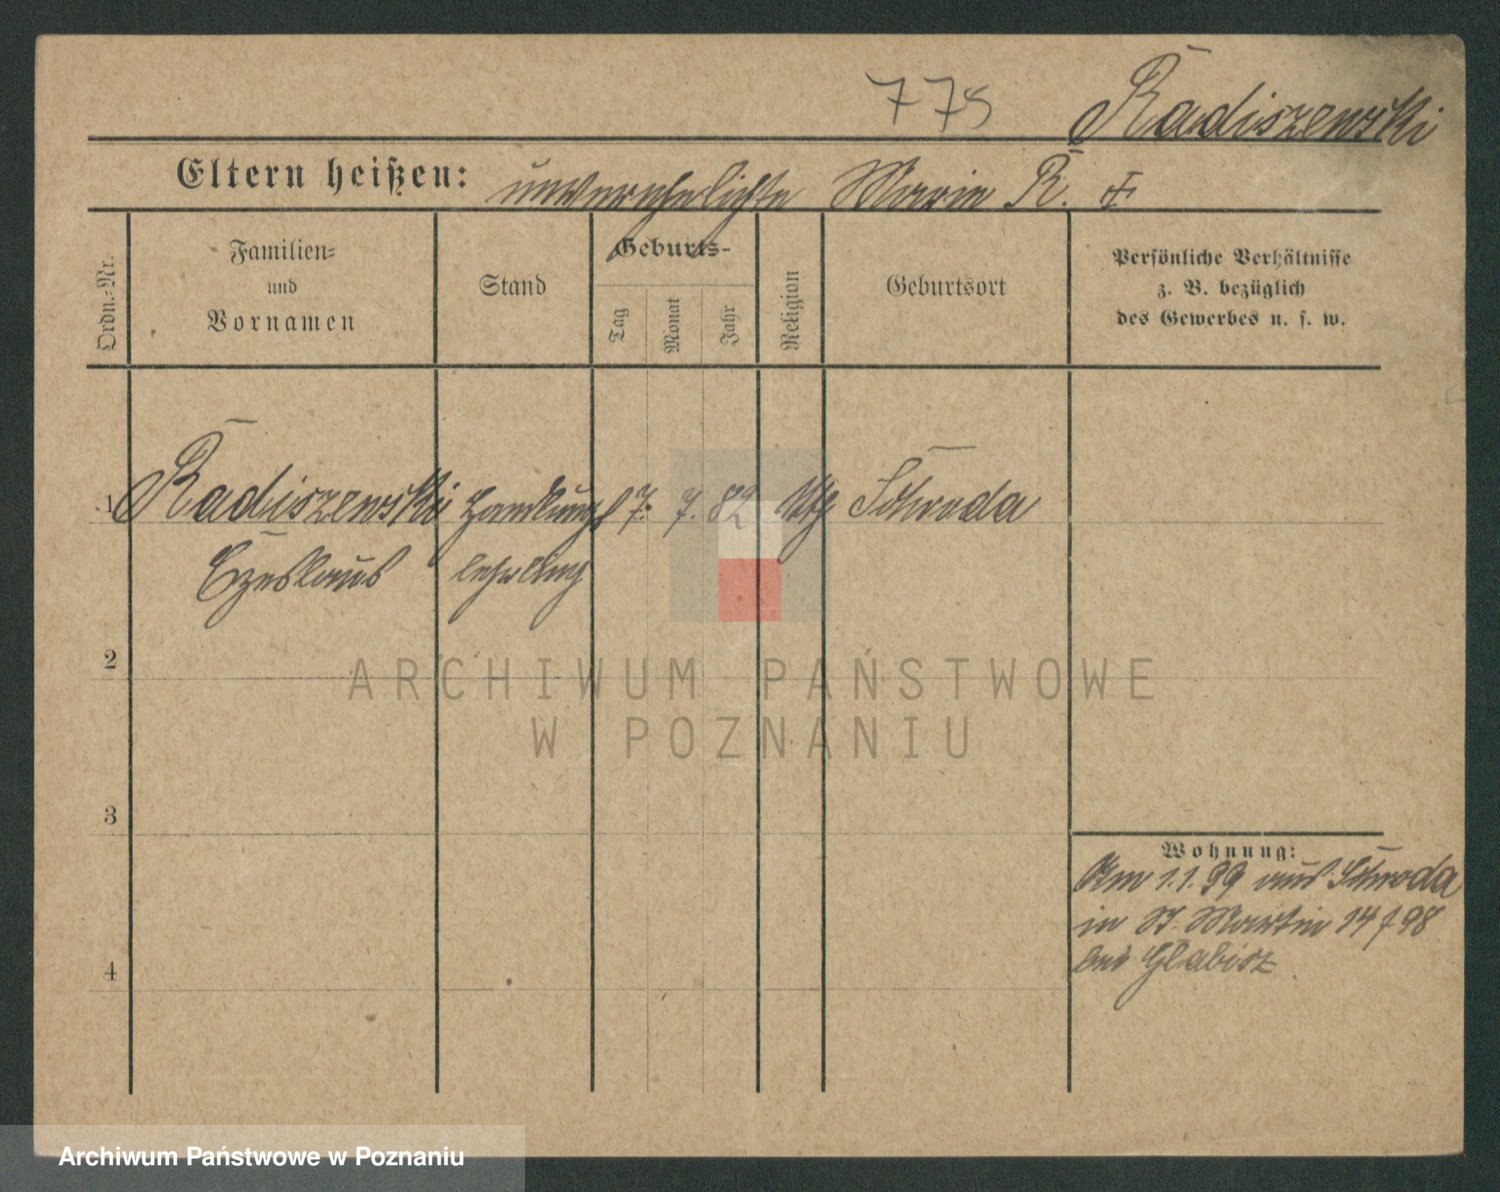 775 Radiszewski
Eltern heißen: unverehelichte Marie R. ‡
Ordn.-Nr.
Familien-
und
Vornamen
Stand
Geburts-
Tag
Monat
Jahr
Religion
Geburtsort
Persönliche Verhältnisse
z. B. bezüglich
des Gewerbes u. s. w.
1 Radiszewski Handlungs 7. 7. 82 Schroda
Czeslaus lehrling
2
ARCHIWUM PAŃSTWOWE
W POZNANIU
3
Wohnung:
Am 1.1.99 aus Schroda
in St. Martin 14 f 98
bei Glabisz
4
Archiwum Państwowe w Poznaniu